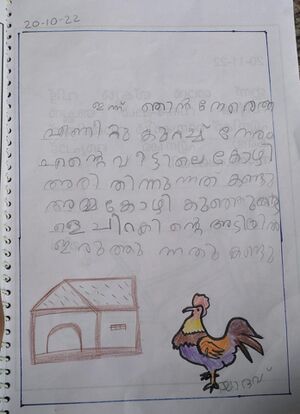 20-10-22
ഇന്ന് ഞാൻ നേരത്തെ
എണീറ്റു കുറച്ച് നേരം
എന്റെ വീട്ടിലെ കോഴി
അരി തിന്നുന്നത് കണ്ടു
അമ്മ കോഴി കുഞ്ഞുങ്ങ
ളെ ചിറകി ന്റെ അടിയിൽ
ഇരുത്തു ന്നതു കണ്ടു
യാദവ്